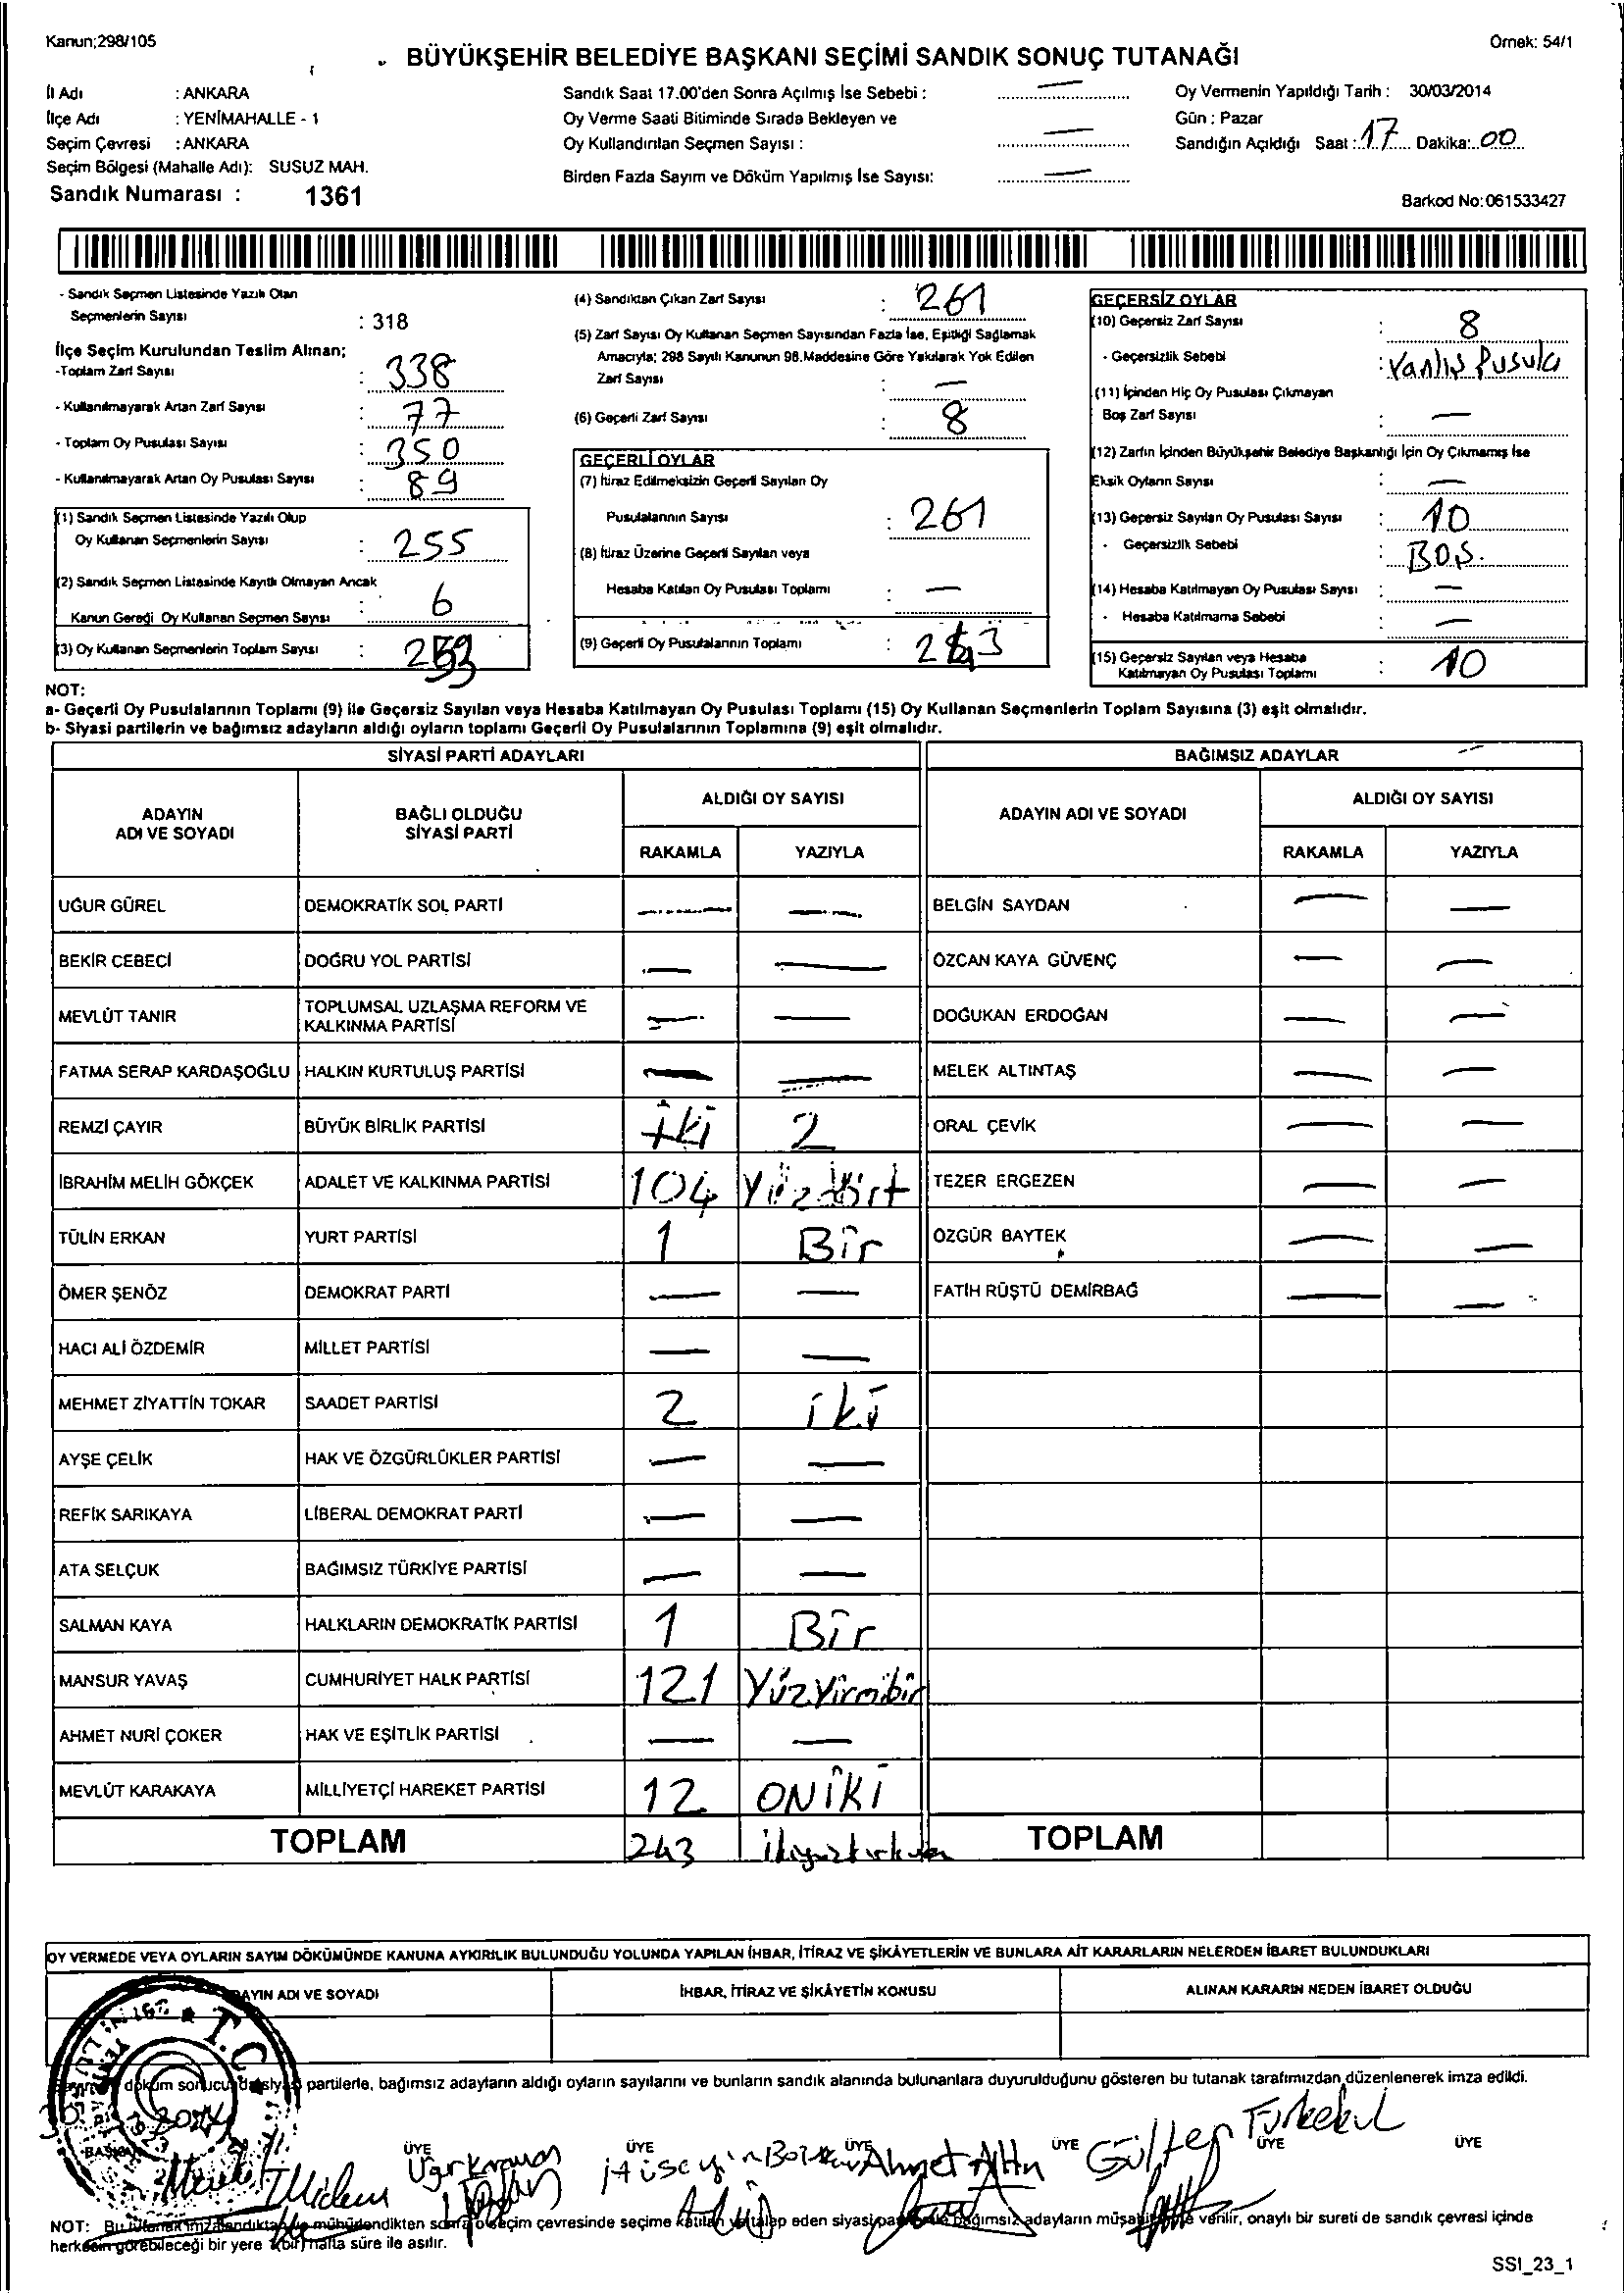 Kanun;298/105
Örnek: 54/1
BÜYÜKŞEHİR BELEDİYE BAŞKANI SEÇİMİ SANDIK SONUÇ TUTANAĞI
İl Adı : ANKARA
İlçe Adı : YENİMAHALLE - 1
Seçim Çevresi : ANKARA
Seçim Bölgesi (Mahalle Adı): SUSUZ MAH.
Sandık Numarası : 1361
Sandık Saat 17.00'den Sonra Açılmış İse Sebebi : —
Oy Verme Saati Bitiminde Sırada Bekleyen ve
Oy Kullandırılan Seçmen Sayısı : —
Birden Fazla Sayım ve Döküm Yapılmış İse Sayısı: —
Oy Vermenin Yapıldığı Tarih : 30/03/2014
Gün : Pazar
Sandığın Açıldığı Saat : 17 Dakika: 00
Barkod No:061533427
- Sandık Seçmen Listesinde Yazılı Olan
Seçmenlerin Sayısı : 318
İlçe Seçim Kurulundan Teslim Alınan;
-Toplam Zarf Sayısı : 338
- Kullanılmayarak Artan Zarf Sayısı : 77
- Toplam Oy Pusulası Sayısı : 350
- Kullanılmayarak Artan Oy Pusulası Sayısı : 89
(1) Sandık Seçmen Listesinde Yazılı Olup
Oy Kullanan Seçmenlerin Sayısı : 255
(2) Sandık Seçmen Listesinde Kayıtlı Olmayan Ancak
Kanun Gereği Oy Kullanan Seçmen Sayısı : 6
(3) Oy Kullanan Seçmenlerin Toplam Sayısı :
(4) Sandıktan Çıkan Zarf Sayısı : 261
(5) Zarf Sayısı Oy Kullanan Seçmen Sayısından Fazla İse, Eşitliği Sağlamak
Amacıyla; 298 Sayılı Kanunun 98.Maddesine Göre Yakılarak Yok Edilen
Zarf Sayısı : —
(6) Geçerli Zarf Sayısı : 8
GEÇERLİ OYLAR
(7) İtiraz Edilmeksizin Geçerli Sayılan Oy
Pusulalarının Sayısı : 261
(8) İtiraz Üzerine Geçerli Sayılan veya
Hesaba Katılan Oy Pusulası Toplamı : —
(9) Geçerli Oy Pusulalarının Toplamı :
GEÇERSİZ OYLAR
(10) Geçersiz Zarf Sayısı : 8
- Geçersizlik Sebebi : Yanlış Pusula
(11) İçinden Hiç Oy Pusulası Çıkmayan
Boş Zarf Sayısı : —
(12) Zarfın İçinden Büyükşehir Belediye Başkanlığı İçin Oy Çıkmamış İse
Eksik Oyların Sayısı : —
(13) Geçersiz Sayılan Oy Pusulası Sayısı : 10
- Geçersizlik Sebebi : BOŞ.
(14) Hesaba Katılmayan Oy Pusulası Sayısı : —
- Hesaba Katılmama Sebebi : —
(15) Geçersiz Sayılan veya Hesaba
Katılmayan Oy Pusulası Toplamı : 10
NOT:
a- Geçerli Oy Pusulalarının Toplamı (9) ile Geçersiz Sayılan veya Hesaba Katılmayan Oy Pusulası Toplamı (15) Oy Kullanan Seçmenlerin Toplam Sayısına (3) eşit olmalıdır.
b- Siyasi partilerin ve bağımsız adayların aldığı oyların toplamı Geçerli Oy Pusulalarının Toplamına (9) eşit olmalıdır.
SİYASİ PARTİ ADAYLARI
ADAYIN ADI VE SOYADI BAĞLI OLDUĞU SİYASİ PARTİ ALDIĞI OY SAYISI
RAKAMLA YAZIYLA
UĞUR GÜREL DEMOKRATİK SOL PARTİ — —
BEKİR CEBECİ DOĞRU YOL PARTİSİ — —
MEVLÜT TANIR TOPLUMSAL UZLAŞMA REFORM VE KALKINMA PARTİSİ — —
FATMA SERAP KARDAŞOĞLU HALKIN KURTULUŞ PARTİSİ — —
REMZİ ÇAYIR BÜYÜK BİRLİK PARTİSİ iki 2
İBRAHİM MELİH GÖKÇEK ADALET VE KALKINMA PARTİSİ 104 Yüzdört
TÜLİN ERKAN YURT PARTİSİ 1 Bir
ÖMER ŞENÖZ DEMOKRAT PARTİ — —
HACI ALİ ÖZDEMİR MİLLET PARTİSİ — —
MEHMET ZİYATTİN TOKAR SAADET PARTİSİ 2 iki
AYŞE ÇELİK HAK VE ÖZGÜRLÜKLER PARTİSİ — —
REFİK SARIKAYA LİBERAL DEMOKRAT PARTİ — —
ATA SELÇUK BAĞIMSIZ TÜRKİYE PARTİSİ — —
SALMAN KAYA HALKLARIN DEMOKRATİK PARTİSİ 1 Bir
MANSUR YAVAŞ CUMHURİYET HALK PARTİSİ 121 Yüzyirmibir
AHMET NURİ ÇOKER HAK VE EŞİTLİK PARTİSİ — —
MEVLÜT KARAKAYA MİLLİYETÇİ HAREKET PARTİSİ 12 ONİKİ
TOPLAM 243
BAĞIMSIZ ADAYLAR —
ADAYIN ADI VE SOYADI ALDIĞI OY SAYISI
RAKAMLA YAZIYLA
BELGİN SAYDAN — —
ÖZCAN KAYA GÜVENÇ — —
DOĞUKAN ERDOĞAN — —
MELEK ALTINTAŞ — —
ORAL ÇEVİK — —
TEZER ERGEZEN — —
ÖZGÜR BAYTEK — —
FATİH RÜŞTÜ DEMİRBAĞ — —
TOPLAM
OY VERMEDE VEYA OYLARIN SAYIM DÖKÜMÜNDE KANUNA AYKIRILIK BULUNDUĞU YOLUNDA YAPILAN İHBAR, İTİRAZ VE ŞİKÂYETLERİN VE BUNLARA AİT KARARLARIN NELERDEN İBARET BULUNDUKLARI
ADI VE SOYADI İHBAR, İTİRAZ VE ŞİKÂYETİN KONUSU ALINAN KARARIN NEDEN İBARET OLDUĞU
T.C.
döküm sonucunda siyasi partilerle, bağımsız adayların aldığı oyların sayılarını ve bunların sandık alanında bulunanlara duyurulduğunu gösteren bu tutanak tarafımızdan düzenlenerek imza edildi.
ÜYE ÜYE ÜYE ÜYE ÜYE ÜYE
Ahmet Altın Gülten
NOT: Bu tutanak imzalandıktan ve mühürlendikten sonra o seçim çevresinde seçime katılan ve talep eden siyasi bağımsız adayların verilir, onaylı bir sureti de sandık çevresi içinde
herkesin görebileceği bir yere 1(bir) hafta süre ile asılır.
SSI_23_1